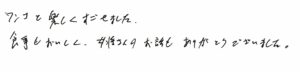 ワンコと楽しくすごせました。
食事もおいしく、女将さんのお話もありがとうございました。